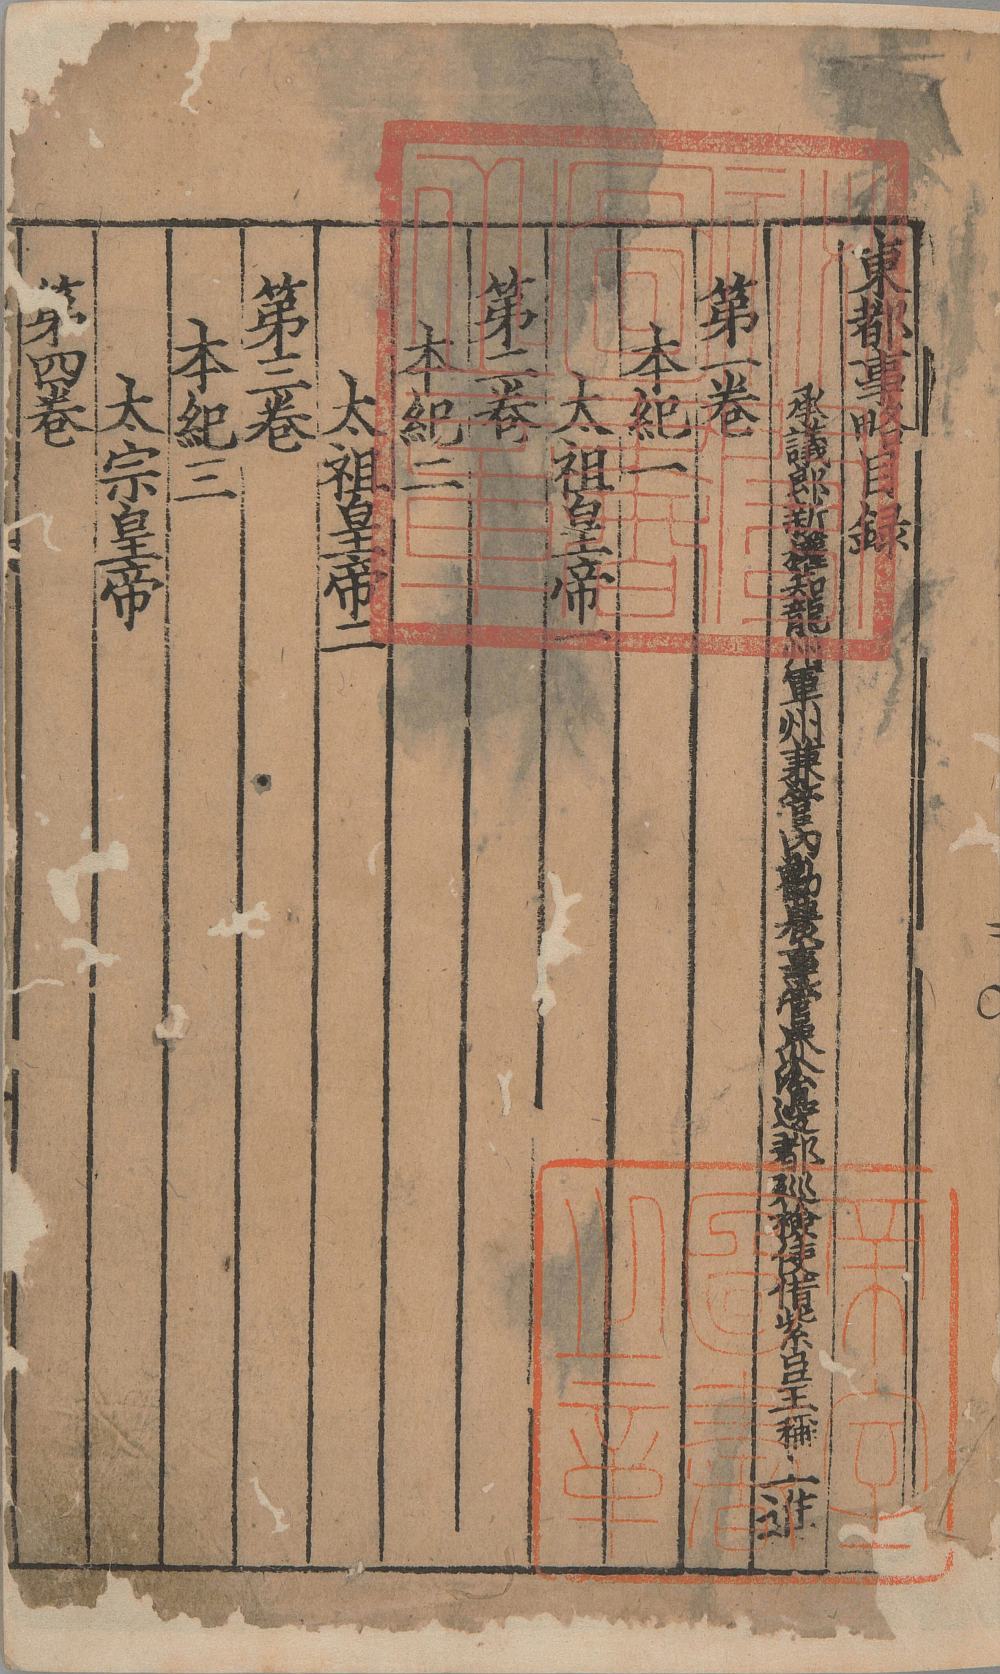 東都事略目録
承議郎新權知龍州軍州兼管內勸農事管界沿邊都巡檢使借紫臣王稱上進
第一卷
本紀一
太祖皇帝一
第二卷
本紀二
太祖皇帝二
第三卷
本紀三
太宗皇帝
第四卷